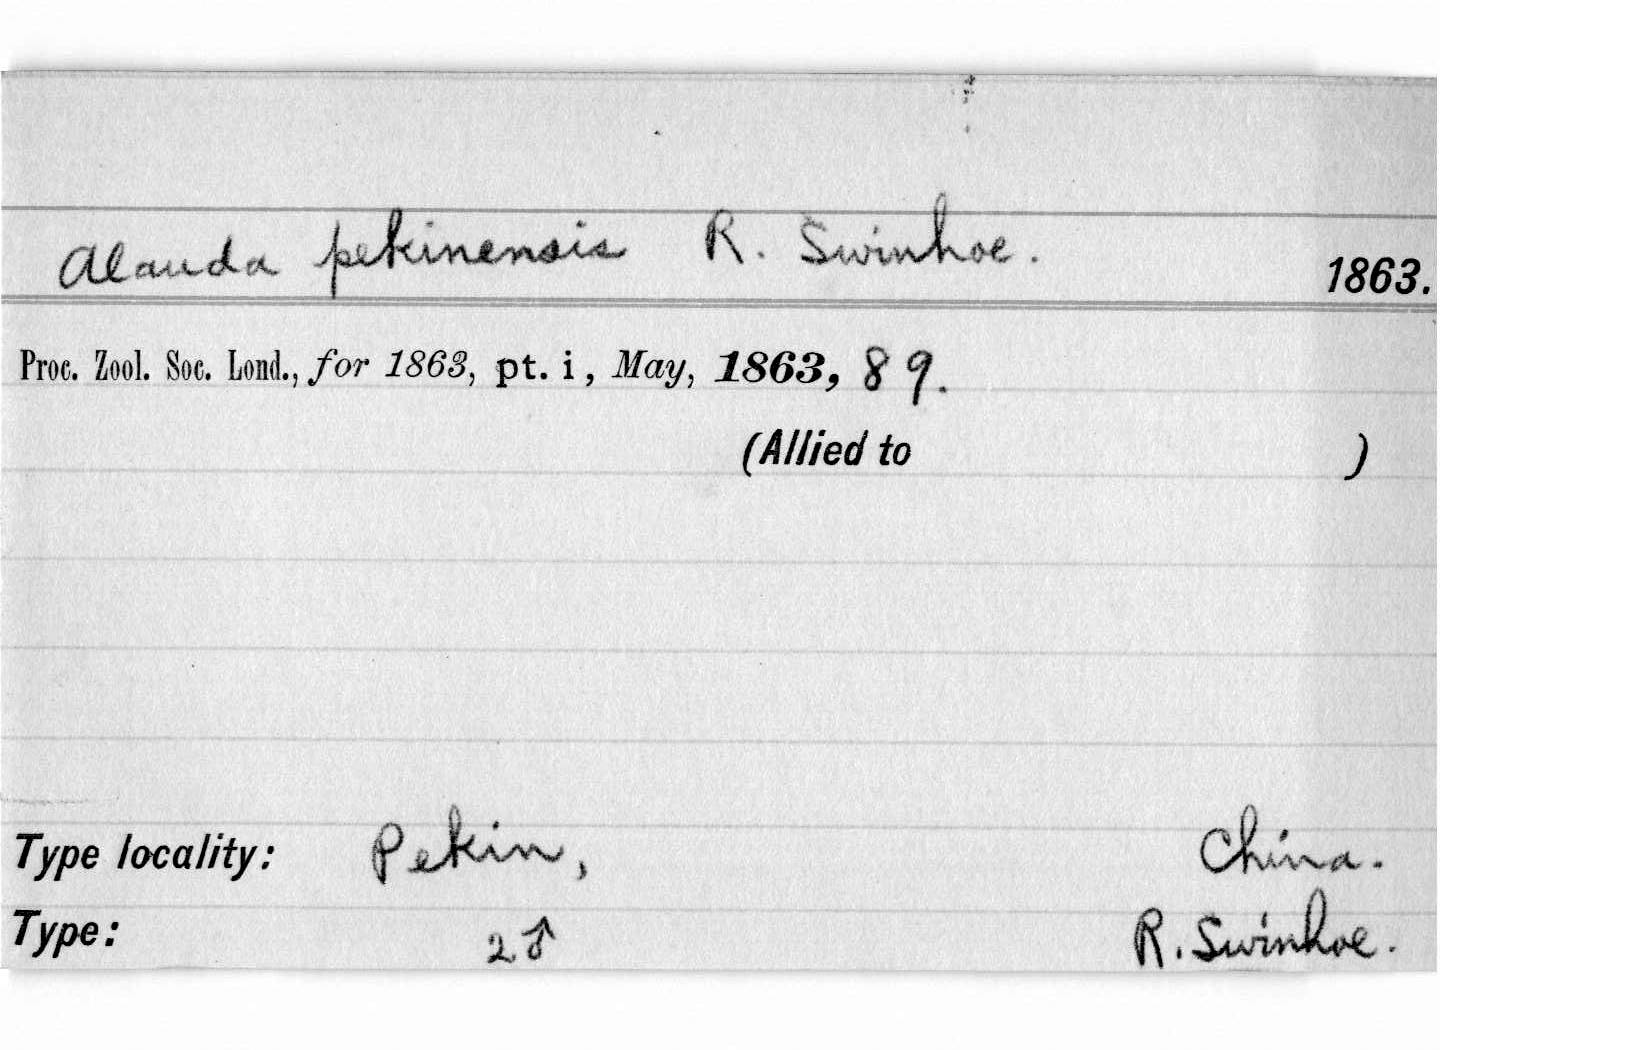 Alauda pekinensis R. Swinhoe. 1863.
Proc. Zool. Soc. Lond., for 1863, pt. i, May, 1863, 89.
(Allied to )
Type locality: Pekin, China.
Type: 2♂ R. Swinhoe.